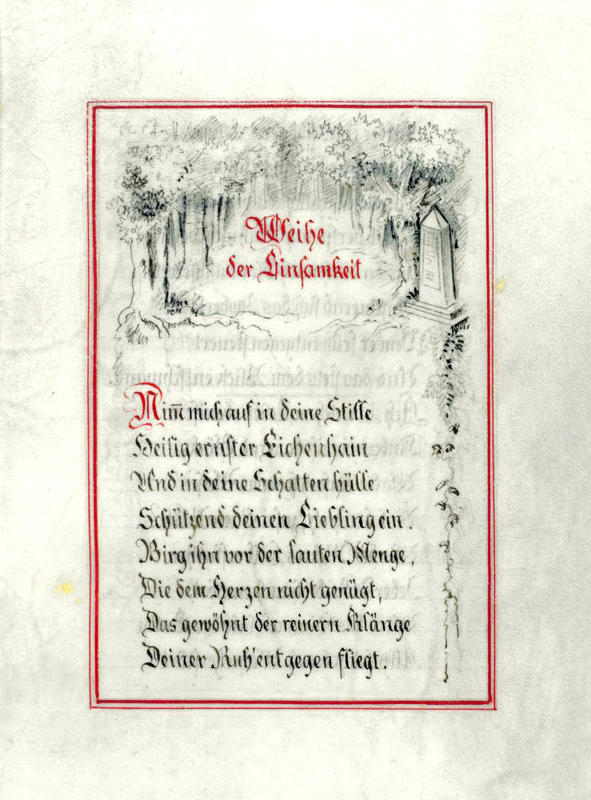 Weihe
der Einsamkeit
Nim̅ mich auf in deine Stille
Heilig ernster Eichenhain
Und in deine Schatten hülle
Schützend deinen Liebling ein.
Birg ihn vor der lauten Menge,
Die dem Herzen nicht genügt,
Das gewöhnt der reinern Klänge
Deiner Ruh' entgegen fliegt.